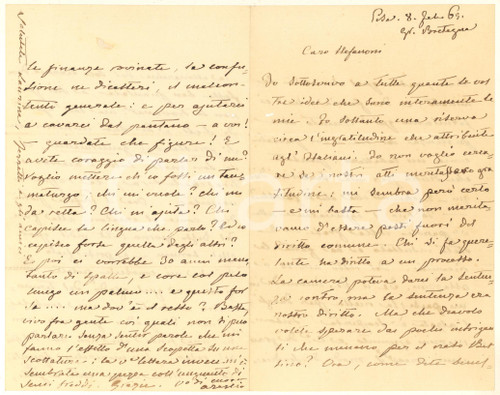 Pisa. 8. Feb. 69.
Caro Stefanoni
Io sottoscrivo a tutte quante le vos
tre idee che sono interamente le
mie. Io soltanto una riserva
circa l'ingratitudine che attribuite
agl' Italiani. Io non voglio cerca-
re se i nostri atti gra
titudine: mi sembra però certo
— e mi basta — che non merita
vamo d'essere posti fuori del
diritto comune. Chi si fa quere-
lante ha diritto a un processo.
La camera poteva darci la senten
za contro, ma la sentenza era
nostro diritto. Ma che diavolo
volete sperare dai poeti
che muoiono per il
Ora, come
le finanze rovinate, la confu-
sione ne' dicasteri, il malcon-
tento generale: e per ajutarci
a cavarci dal pantano — a voi!
— guardate che figure! E
avete coraggio di parlar di me?
Voglio mettere ch'io fossi un tau
maturgo, chi mi vuole? chi mi
dà retta? Chi m'ajuta? Chi
capisce la lingua che parlo? Ed io
capisco forse quella degli altri?
E poi ci vorrebbe 30 anni meno,
tanto di spalle, e core col pelo
lungo un palmo.... e questo for
se .... ma dov'è il resto? Basta,
vivo fra gente coi quali non si può
parlare senza sentir parole che mi
fanno l'effetto d'una scopetta su una
scottatura: la vostra lettera invece mi
sembrata una coll'unguento di
semi freddi. Grazie. Vo di cuore